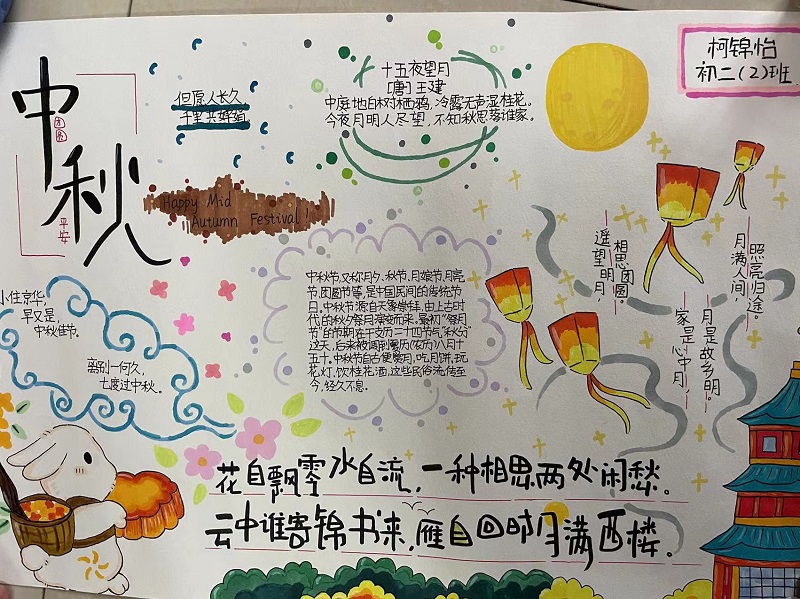 中秋
团圆
平安
但愿人长久
千里共婵娟
Happy Mid
Autumn Festival!
十五夜望月
[唐]王建
中庭地白树栖鸦,冷露无声湿桂花。
今夜月明人尽望,不知秋思落谁家。
柯锦怡
初二(2)班
小住京华,
早又是,
中秋佳节。
离别一何久,
七度过中秋。
中秋节,又称月夕、秋节、月娘节、月亮
节、团圆节等,是中国民间的传统节
日。中秋节源自天象崇拜,由上古时
代的秋夕祭月演变而来。最初“祭月
节”的节期在干支历二十四节气“秋分”
这天,后来被调到夏历(农历)八月十
五。中秋节自古便赏月、吃月饼、玩
花灯、饮桂花酒,这些民俗流传至
今,经久不息。
相思团圆。
遥望明月,
照亮归途。
月满人间,
月是故乡明。
家是心中月,
花自飘零水自流,一种相思两处闲愁。
云中谁寄锦书来,雁自回时月满西楼。